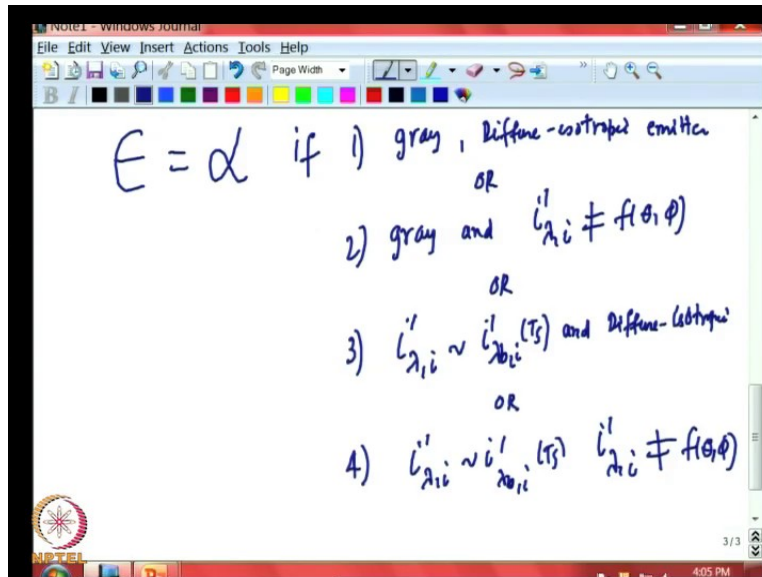 Note1 - Windows Journal
File Edit View Insert Actions Tools Help
Page Width
B I
Є = α if 1) gray, Diffuse-isotropic emitter
OR
2) gray and i'λ,i ≠ f(θ,φ)
OR
3) i'λ,i ~ i'λb,i (Ts) and Diffuse-Isotropic
OR
4) i'λ,i ~ i'λb,i (Ts) i'λ,i ≠ f(θ,φ)
3/3
NPTEL
4:05 PM